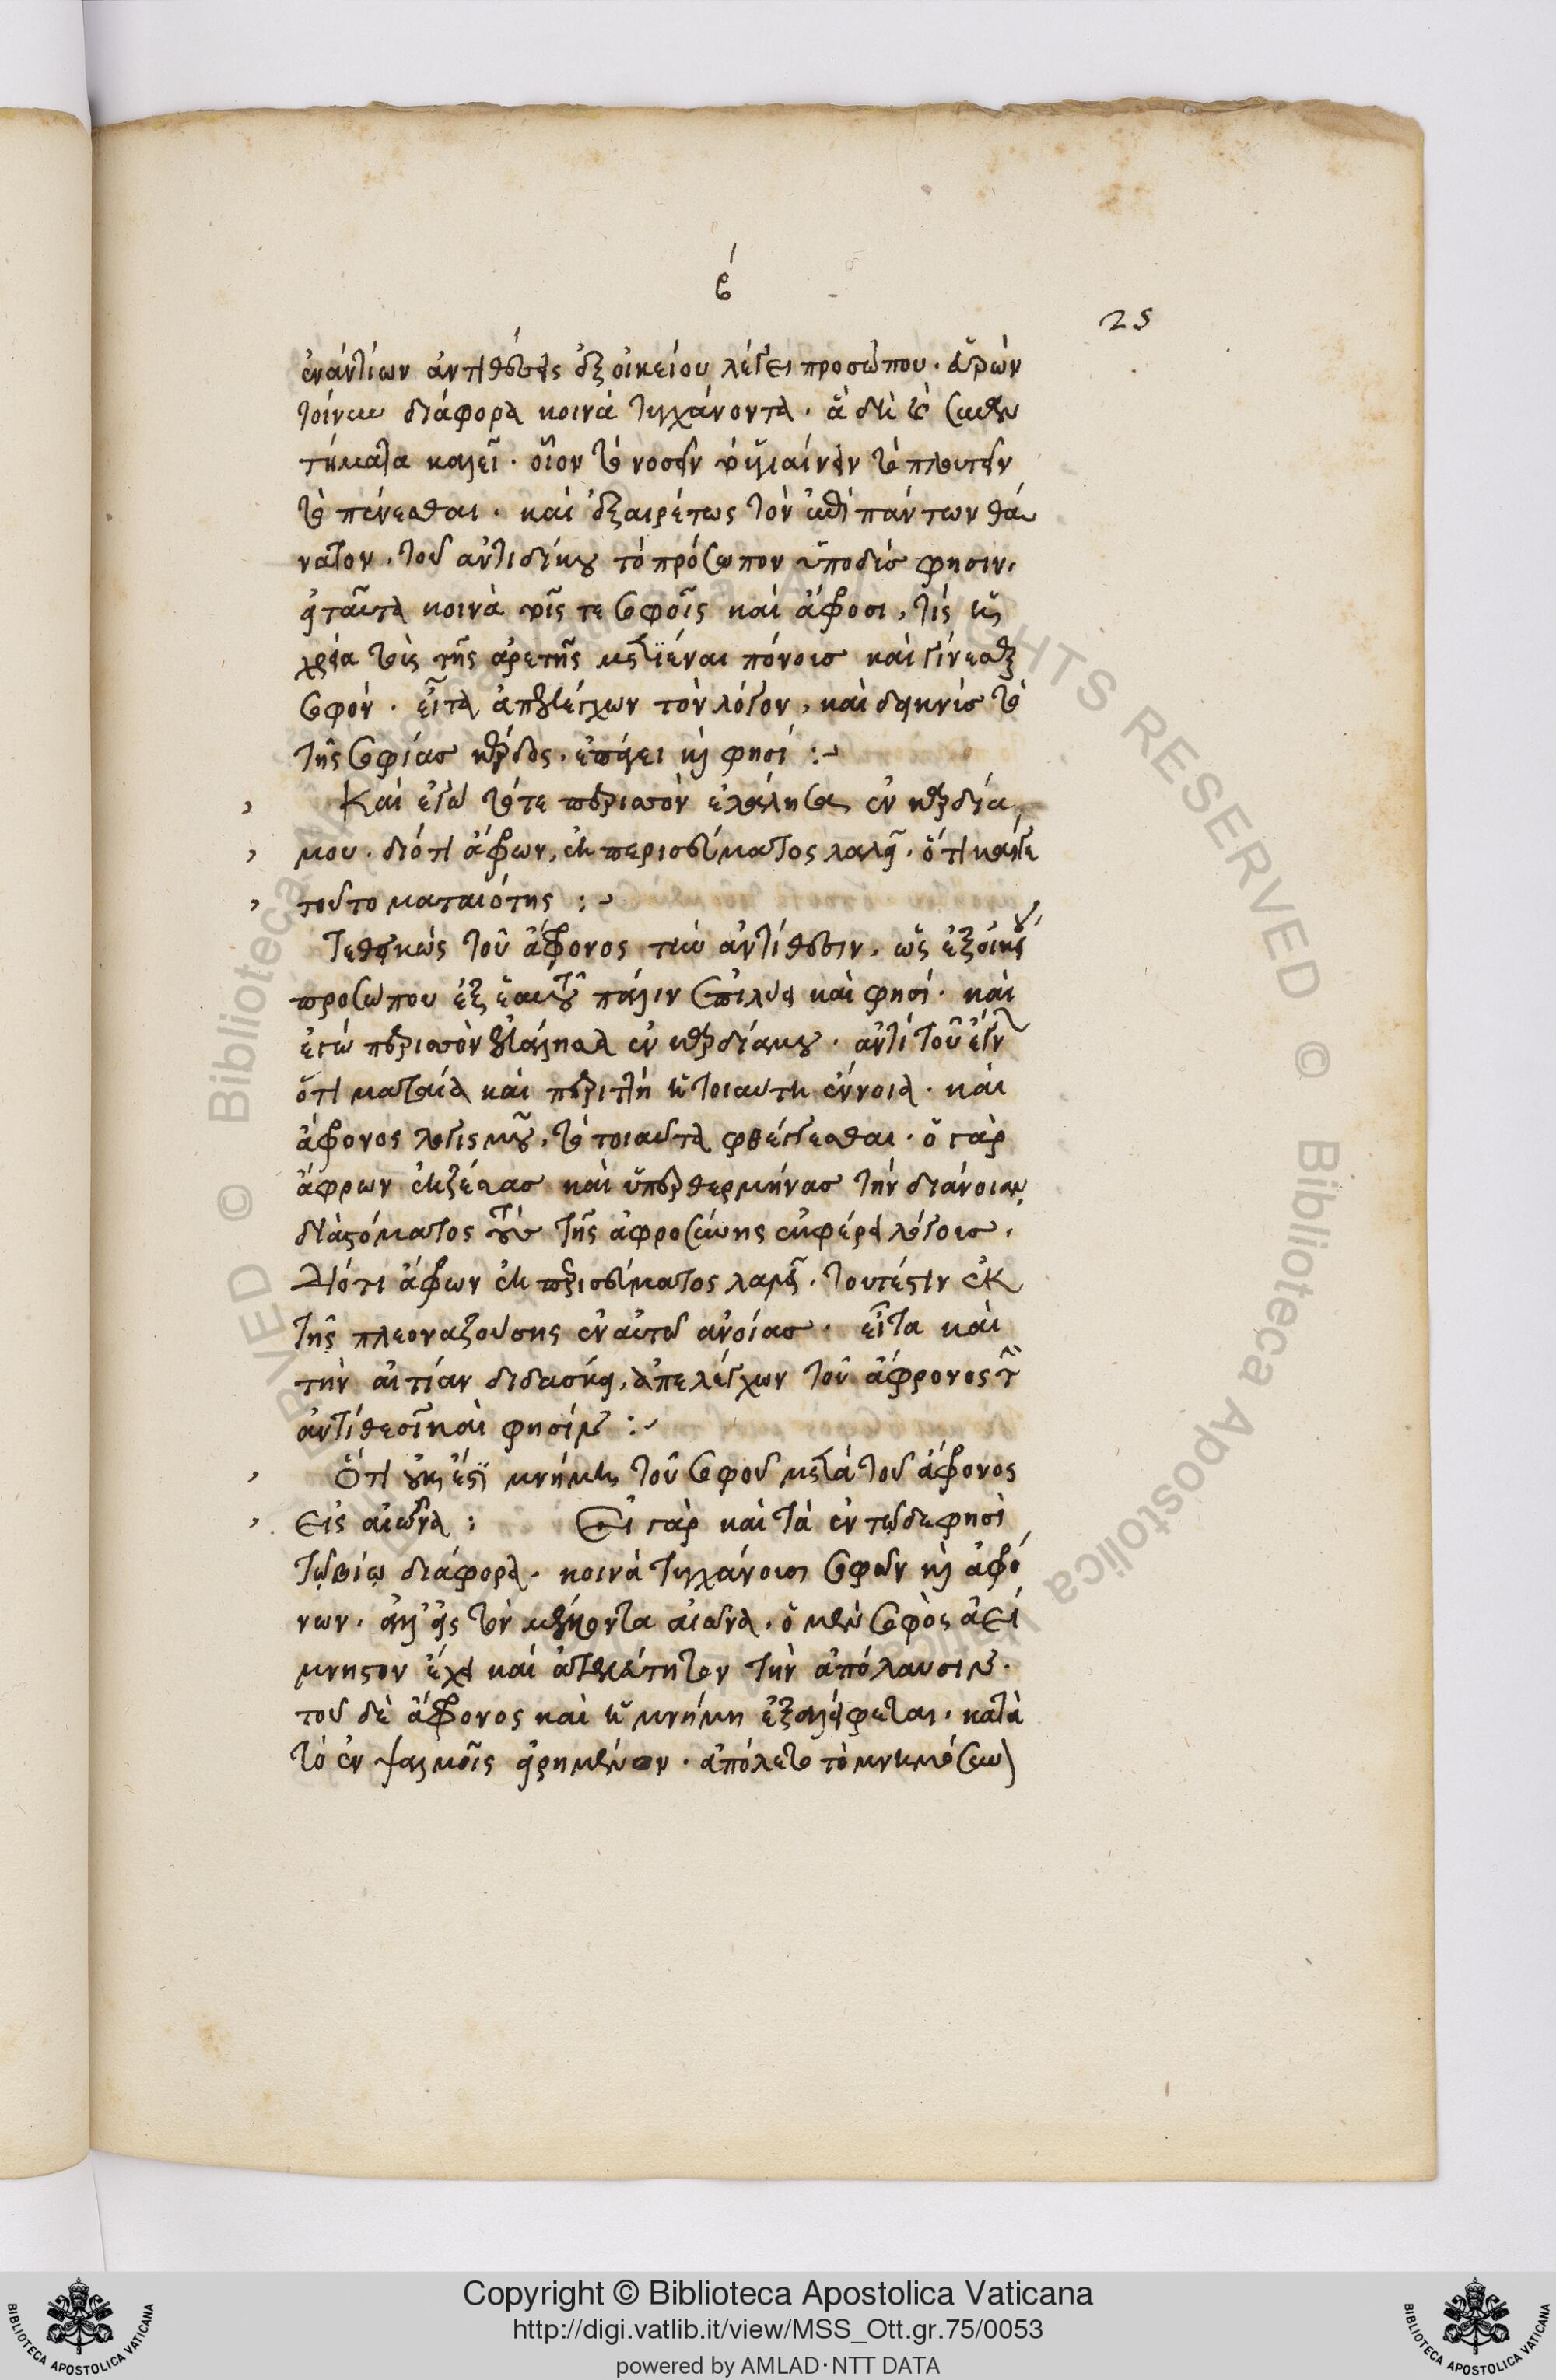 β
25
ἐναντίων ἀντιθέσεις ἐξ οἰκείου λέγει προσώπου. εὑρὼν
τοίνυν διάφορα κοινὰ τυγχάνοντα. ἃ δὴ καὶ συναν
τήματα καλεῖ. οἷον τὸ νοσεῖν τὸ ὑγιαίνειν τὸ πλουτεῖν
τὸ πένεσθαι. καὶ ἐξαιρέτως τὸν ἐπὶ πάντων θά
νατον. τοῦ ἀντιδίκου τὸ πρόσωπον ὑποδύς φησιν.
εἰ ταῦτα κοινὰ τοῖς τε σοφοῖς καὶ ἄφροσι, τίς ἡ
χρεία τοῖς τῆς ἀρετῆς μετιέναι πόνοις καὶ γίνεσθαι
σοφόν. εἶτα ἀπελέγχων τὸν λόγον, καὶ δεικνὺς τὸ
τῆς σοφίας κέρδος. ἐπάγει καὶ φησί :~
Καὶ ἐγὼ τότε περισσὸν ἐλάλησα ἐν καρδίᾳ
μου. διότι ἄφρων, ἐκ περισσεύματος λαλεῖ. ὅτι καίγε
τοῦτο ματαιότης :~
Τεθεικὼς τοῦ ἄφρονος τὴν ἀντίθεσιν. ὡς ἐξ οἰκείου
προσώπου ἐξ ἑαυτοῦ πάλιν ἐπιλύει καὶ φησί. καὶ
ἐγὼ περισσὸν ἐλάλησα ἐν καρδίᾳ μου. ἀντὶ τοῦ ἔγνων
ὅτι ματαία καὶ περιττὴ ἡ τοιαύτη ἔννοια. καὶ
ἄφρονος λογισμοῦ, τὸ τοιαῦτα φθέγγεσθαι. ὁ γὰρ
ἄφρων ἐκζέσας καὶ ὑπερθερμήνας τὴν διάνοιαν
διὰ στόματος τοὺς τῆς ἀφροσύνης ἐκφέρει λόγους.
Διότι ἄφρων ἐκ περισσεύματος λαλεῖ. τουτέστιν ἐκ
τῆς πλεοναζούσης ἐν αὐτῷ ἀνοίας. εἶτα καὶ
τὴν αἰτίαν διδάσκει, ἀπελέγχων τοῦ ἄφρονος τὴν
ἀντίθεσιν καὶ φησίν :~
Ὅτι οὐκ ἔστι μνήμη τοῦ σοφοῦ μετὰ τοῦ ἄφρονος
εἰς αἰῶνα : Εἰ γὰρ καὶ τὰ ἐν τῷδε φησὶ
τῷ βίῳ διάφορα. κοινὰ τυγχάνουσι σοφῶν καὶ ἀφρό
νων. ἀλλ' εἰς τὸν μέλλοντα αἰῶνα. ὁ μὲν σοφὸς ἀεί
μνηστον ἔχει καὶ τὴν ἀπόλαυσιν.
τοῦ δὲ ἄφρονος καὶ ἡ μνήμη ἐξαλείφεται. κατὰ
τὸ ἐν ψαλμοῖς εἰρημένον. ἀπόλετο τὸ μνημόσυνον
Copyright © Biblioteca Apostolica Vaticana
http://digi.vatlib.it/view/MSS_Ott.gr.75/0053
powered by AMLAD·NTT DATA